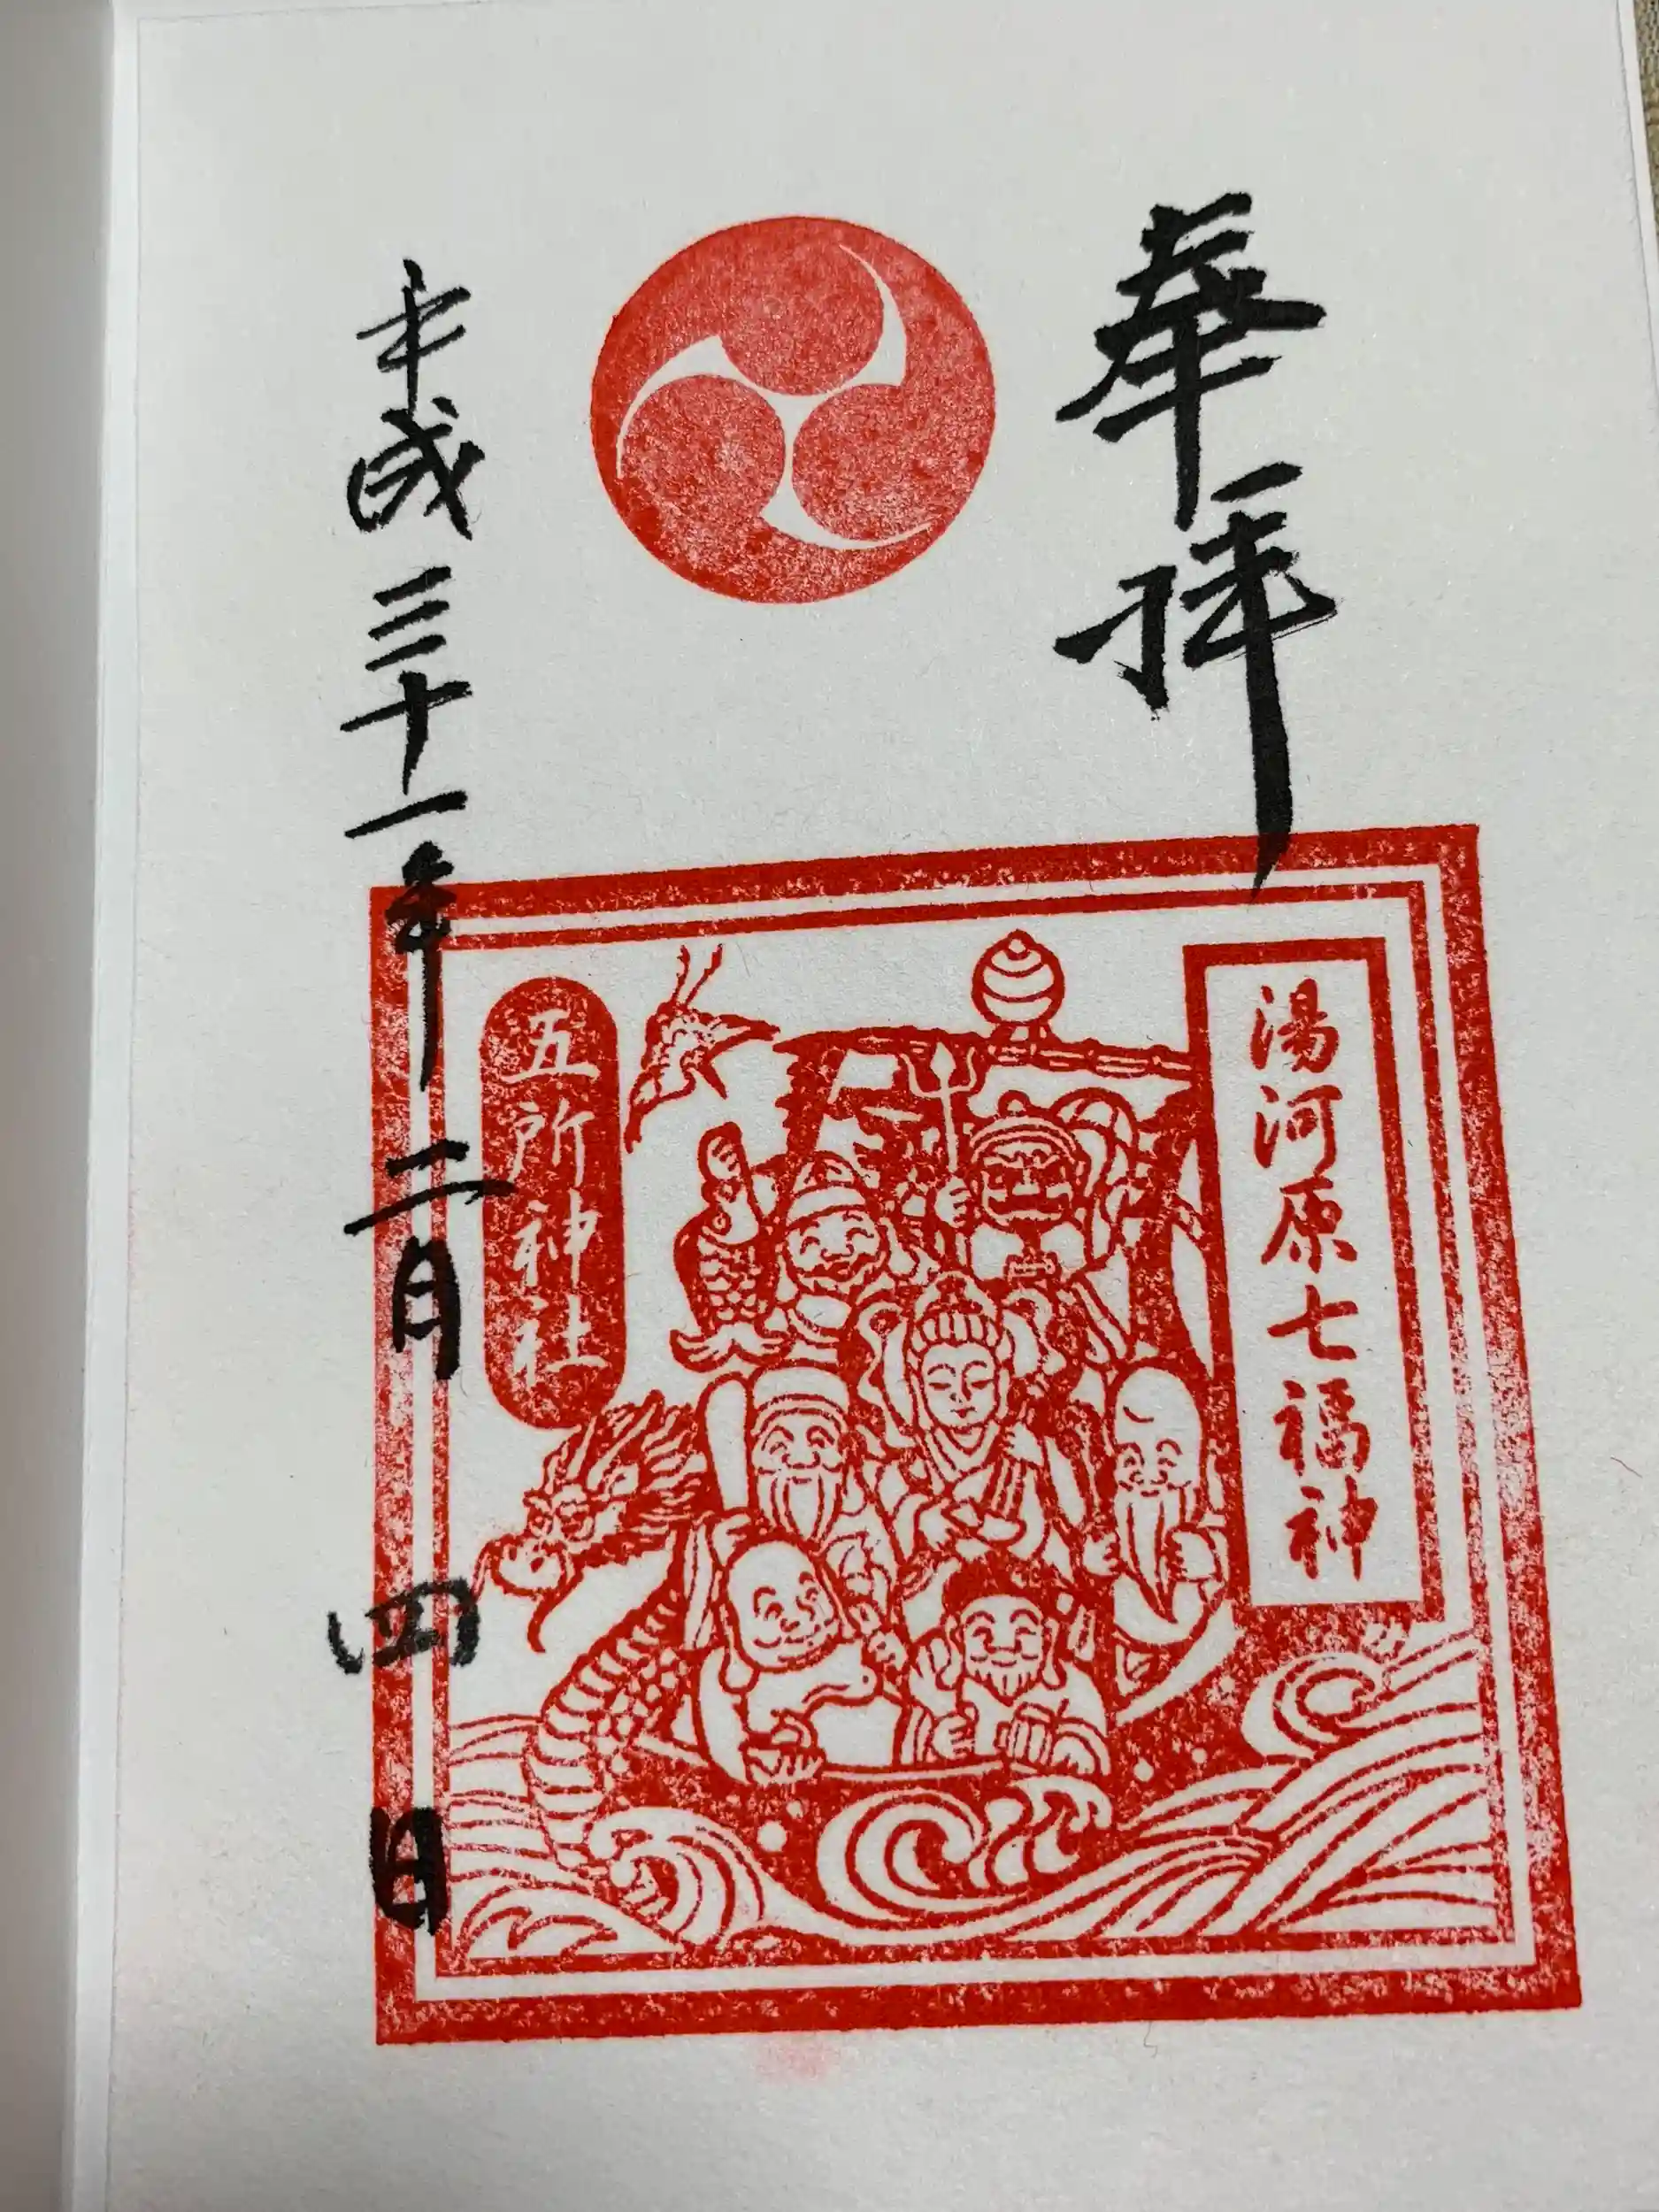 奉拝
湯河原七福神
五所神社
平成三十一年二月四日